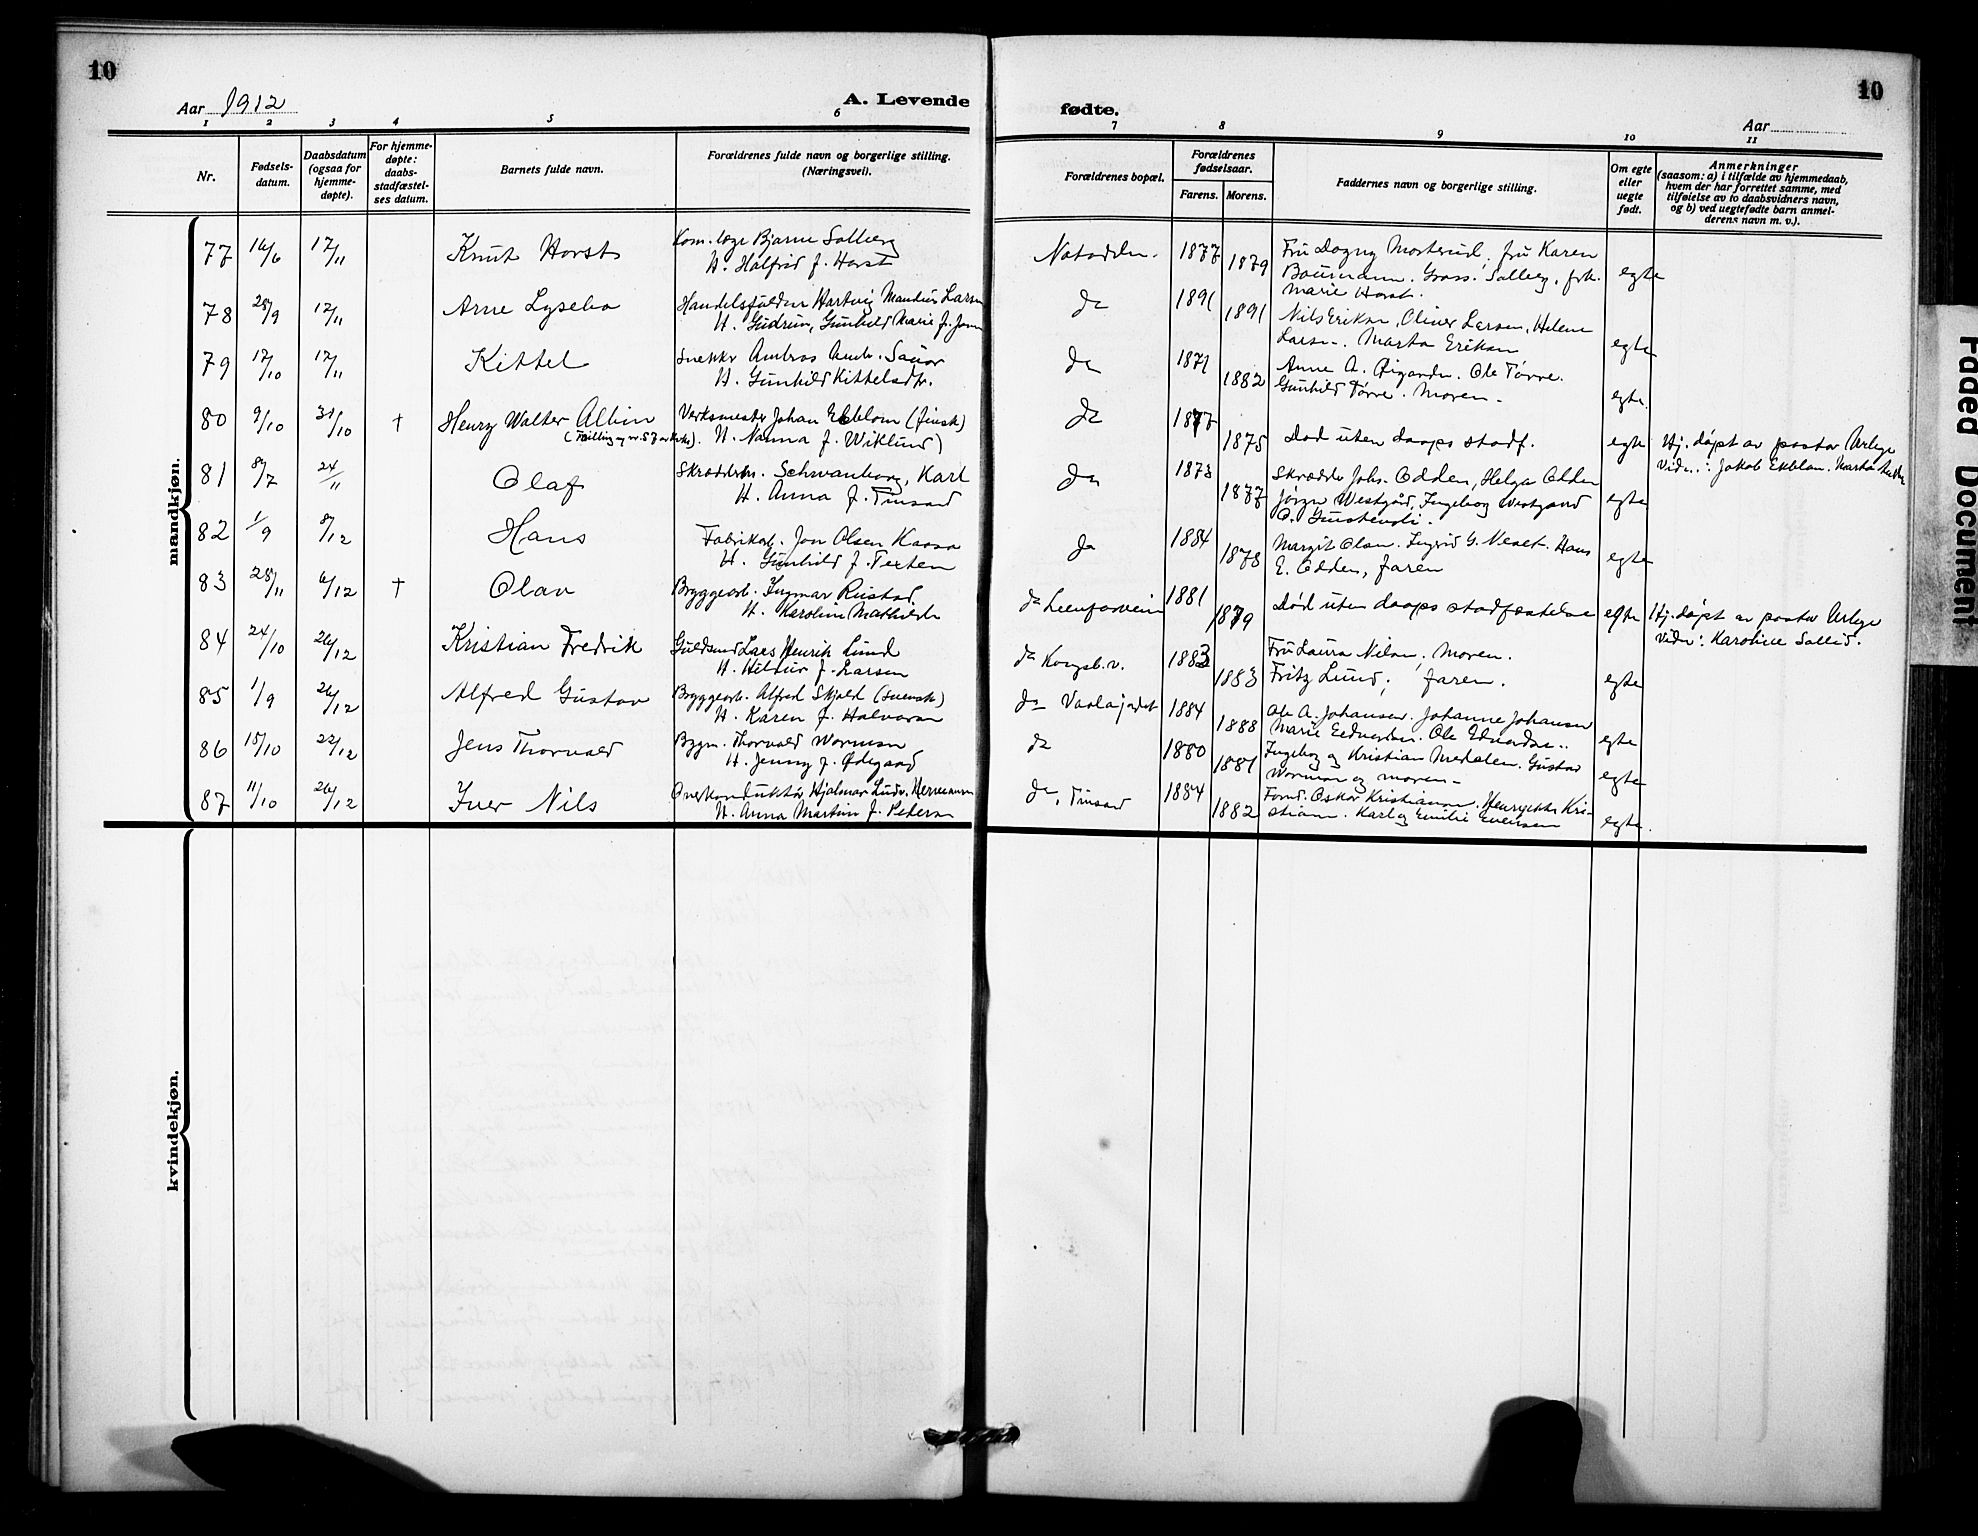 10
Aar 1912
A. Levende
1 2 3 4 5 6
Nr.
Fødsels-
datum.
Daabsdatum
(ogsaa for
hjemme-
døpte).
For hjemme-
døpte:
daabs-
stadfæstel-
ses datum.
Barnets fulde navn.
Forældrenes fulde navn og borgerlige stilling.
(Næringsvei).
mandkjøn.
77 16/6 17/11 Knut Horst Kom. læge Bjarne Solberg
H. Halfrid f. Horst
78 28/9 17/11 Arne Lysebo Handelsfuldm Hartvig Mandius Larsen
H. Gudrun, Gunhild Marie f. Jensen
79 17/10 17/11 Kittel Snekker Ambros Amb. Sauar
H. Gunhild Kittelsdtr.
80 9/10 31/10 † Henry Walter Albin Verksmester Johan Ekblom (finsk)
H. Nanna f. Wiklund)
81 8/7 24/11 Olaf Skrædderm. Schwanborg, Karl
H. Anna f. Tinsad
82 1/9 8/12 Hans Fabrikarb. Jon Olsen Kaasa
H. Gunhild f. Texten
83 28/11 6/12 † Olav Bryggearb. Ingmar Rustad
H. Karoline Mathisdt
84 24/10 26/12 Kristian Fredrik Guldsmed Lars Henrik Lund
H. Hildur f. Larsen
85 1/9 26/12 Alfred Gustav Bryggearb. Alfred Skjold (svensk)
H. Karen f. Halvorsen
86 15/10 22/12 Jens Thorvald Bygm. Thorvald Wormsen
H. Jenny f. Ødegaard
87 11/10 26/12 Iver Nils Overkonduktør Hjalmar Ludv. Hermansen
H. Anna Martine f. Pedersen
kvindekjøn.
10
fødte.
Aar
7 8 9 10 11
Forældrenes bopæl.
Forældrenes
fødselsaar.
Farens. Morens.
Faddernes navn og borgerlige stilling.
Om egte
eller
uegte
født.
Anmerkninger
(saasom: a) i tilfælde av hjemmedaab,
hvem der har forrettet samme, med
tilføielse av to daabsvidners navn,
og b) ved uegtefødte barn anmel-
derens navn m. v.).
Notodden. 1877 1879 Fru Dagny Morterud, fru Karen
Baumann. Gross. Solberg, frk. egte
Marie Horst.
do 1891 1891 Nils Eriksen, Oliver Larsen, Helene
Larsen. Marta Eriksen egte
do 1871 1882 Anne A. Ole Tørre.
Gunhild Tørre. Moren. egte.
do 1877 1875 Død uten daaps stadf. egte Hj. døpt av pastor Urlye
Vidn.: Jakob Ekblom.
do 1873 1877 Skrædder Johs. Odden, Helga Odden
Jørgen Westgård, Ingeborg Westgaard egte
do 1884 1878 Margit Olsen. Ingrid G. Hans
E. Odden, faren egte
do 1881 1879 Død uten daaps stadfæstelse egte Hj. døpt av pastor Urlye
Vidn: Karoline Sollid.
do Kongsb. v. 1883 1883 Fru Laura Nilsen, Moren.
Fritz Lund, faren. egte
do 1884 1888 Ole A. Johansen. Johanne Johansen
Marie Edvardsen. Ole Edvardsen. egte
do 1880 1881 Ingeborg og Kristian Medalen. Gustav
Wormsen og moren. egte
do, Tinsad 1884 1882 Form. Oskar Kristiansen. Henrykke Kri-
stiansen. Karl og Emilie Evensen egte.
Faded Document